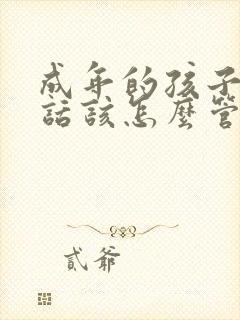 成年的孩子
話該怎麼管
貳爺